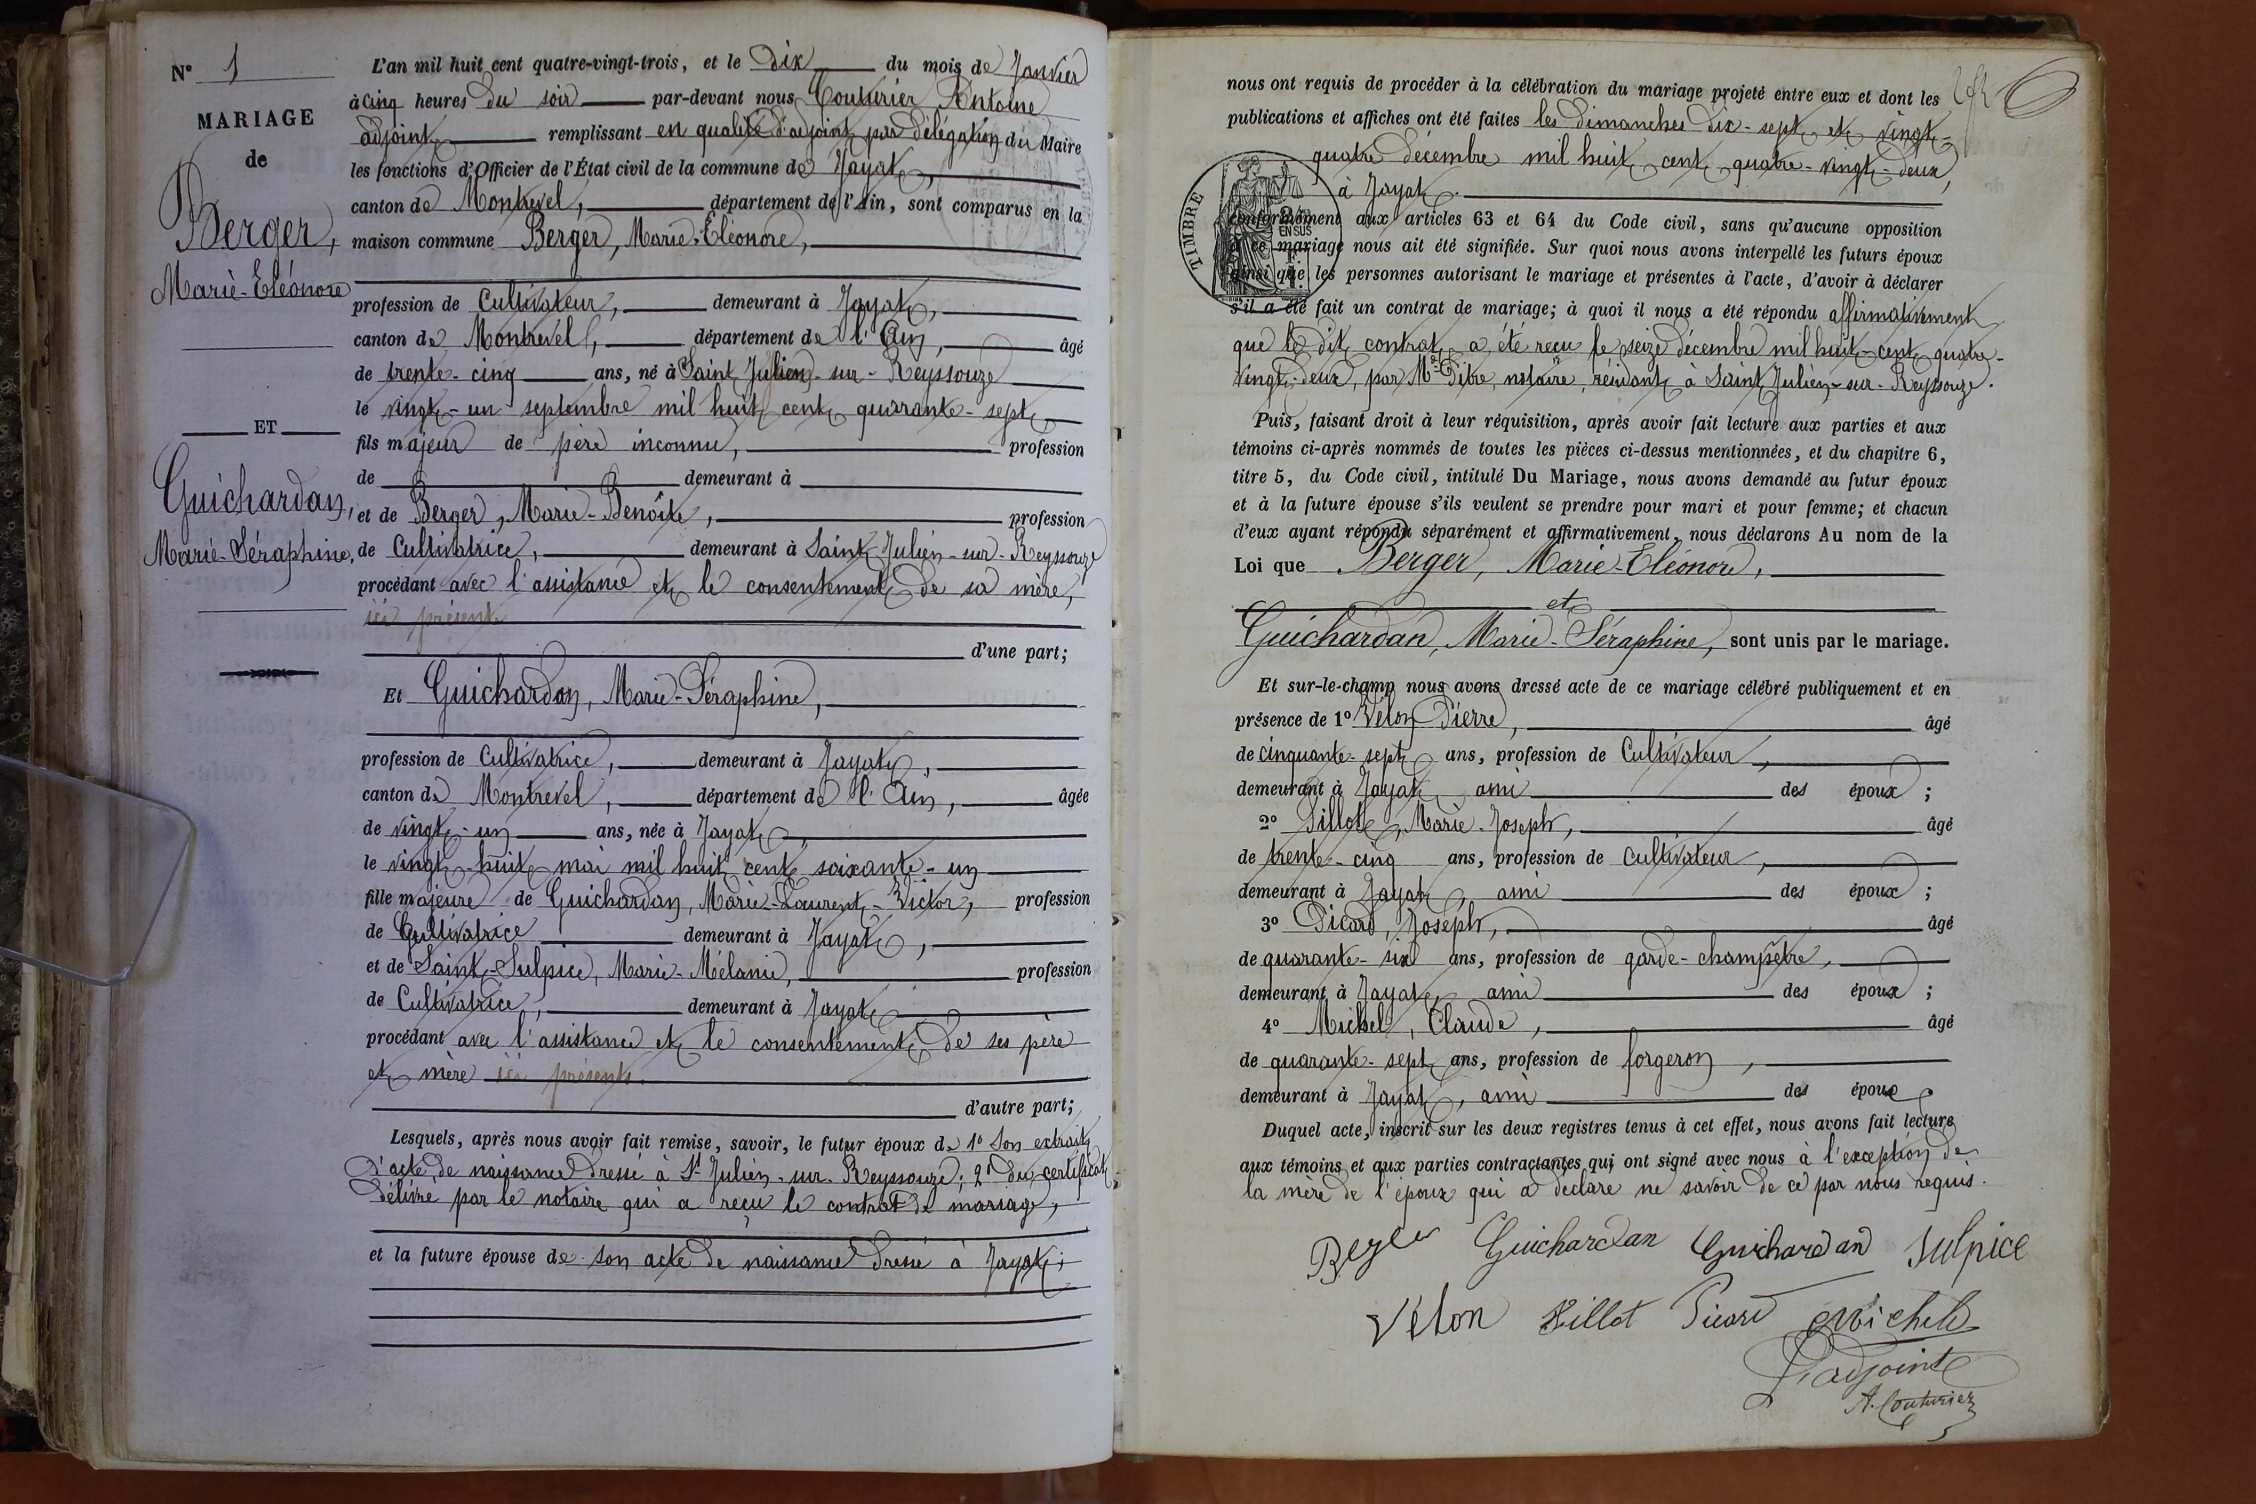 N° 1
MARIAGE
de
Berger,
Marie-Eléonore
ET
Guichardan,
Marie-Séraphine,
L'an mil huit cent quatre-vingt-trois, et le dix du mois de Janvier
à cinq heures du soir par-devant nous Couturier Antoine
adjoint remplissant en qualité d'adjoint par délégation du Maire
les fonctions d'Officier de l'État civil de la commune de Jayat,
canton de Montrevel, département de l'Ain, sont comparus en la
maison commune Berger, Marie-Eléonore,
profession de Cultivateur, demeurant à Jayat,
canton de Montrevel, département de l'Ain, âgé
de trente-cinq ans, né à Saint Julien-sur-Reyssouze
le vingt-un septembre mil huit cent quarante-sept
fils majeur de père inconnu, profession
de demeurant à
et de Berger, Marie-Benoîte, profession
de Cultivatrice, demeurant à Saint Julien-sur-Reyssouze
procédant avec l'assistance et le consentement de sa mère,
ici présente
d'une part;
Et Guichardan, Marie-Séraphine,
profession de Cultivatrice, demeurant à Jayat,
canton de Montrevel, département de l'Ain, âgée
de vingt-un ans, née à Jayat,
le vingt-huit mai mil huit cent soixante-un
fille majeure de Guichardan, Marie-Laurent-Victor, profession
de Cultivatrice demeurant à Jayat,
et de Saint-Sulpice, Marie-Mélanie, profession
de Cultivatrice, demeurant à Jayat
procédant avec l'assistance et le consentement de ses père
et mère ici présents.
d'autre part;
Lesquels, après nous avoir fait remise, savoir, le futur époux de 1° Son extrait
d'acte de naissance dressé à St Julien-sur-Reyssouze; 2° du certificat
délivré par le notaire qui a reçu le contrat de mariage,
et la future épouse de son acte de naissance dressé à Jayat;
nous ont requis de procéder à la célébration du mariage projeté entre eux et dont les
publications et affiches ont été faites les dimanches dix-sept et vingt-
quatre décembre mil huit cent quatre-vingt-deux,
à Jayat.
TIMBRE
2/10 EN SUS
conformément aux articles 63 et 64 du Code civil, sans qu'aucune opposition
à ce mariage nous ait été signifiée. Sur quoi nous avons interpellé les futurs époux
ainsi que les personnes autorisant le mariage et présentes à l'acte, d'avoir à déclarer
s'il a été fait un contrat de mariage; à quoi il nous a été répondu affirmativement
que le dit contrat a été reçu le seize décembre mil huit-cent quatre-
vingt-deux, par Me Dibre, notaire, résidant à Saint Julien-sur-Reyssouze.
Puis, faisant droit à leur réquisition, après avoir fait lecture aux parties et aux
témoins ci-après nommés de toutes les pièces ci-dessus mentionnées, et du chapitre 6,
titre 5, du Code civil, intitulé Du Mariage, nous avons demandé au futur époux
et à la future épouse s'ils veulent se prendre pour mari et pour femme; et chacun
d'eux ayant répondu séparément et affirmativement, nous déclarons Au nom de la
Loi que Berger, Marie-Eléonore,
et
Guichardan, Marie-Séraphine, sont unis par le mariage.
Et sur-le-champ nous avons dressé acte de ce mariage célébré publiquement et en
présence de 1° Vélon Pierre, âgé
de cinquante-sept ans, profession de Cultivateur,
demeurant à Jayat, ami des époux;
2° Sillot, Marie-Joseph, âgé
de trente-cinq ans, profession de cultivateur,
demeurant à Jayat, ami des époux;
3° Picard, Joseph, âgé
de quarante-six ans, profession de garde-champêtre,
demeurant à Jayat, ami des époux;
4° Michel, Claude, âgé
de quarante-sept ans, profession de forgeron,
demeurant à Jayat, ami des époux.
Duquel acte, inscrit sur les deux registres tenus à cet effet, nous avons fait lecture
aux témoins et aux parties contractantes qui ont signé avec nous à l'exception de
la mère de l'époux qui a déclaré ne savoir de ce par nous requis.
Berger Guichardan Guichardan Sulpice
Vélon Sillot Picard Michel
L'adjoint
A. Couturier